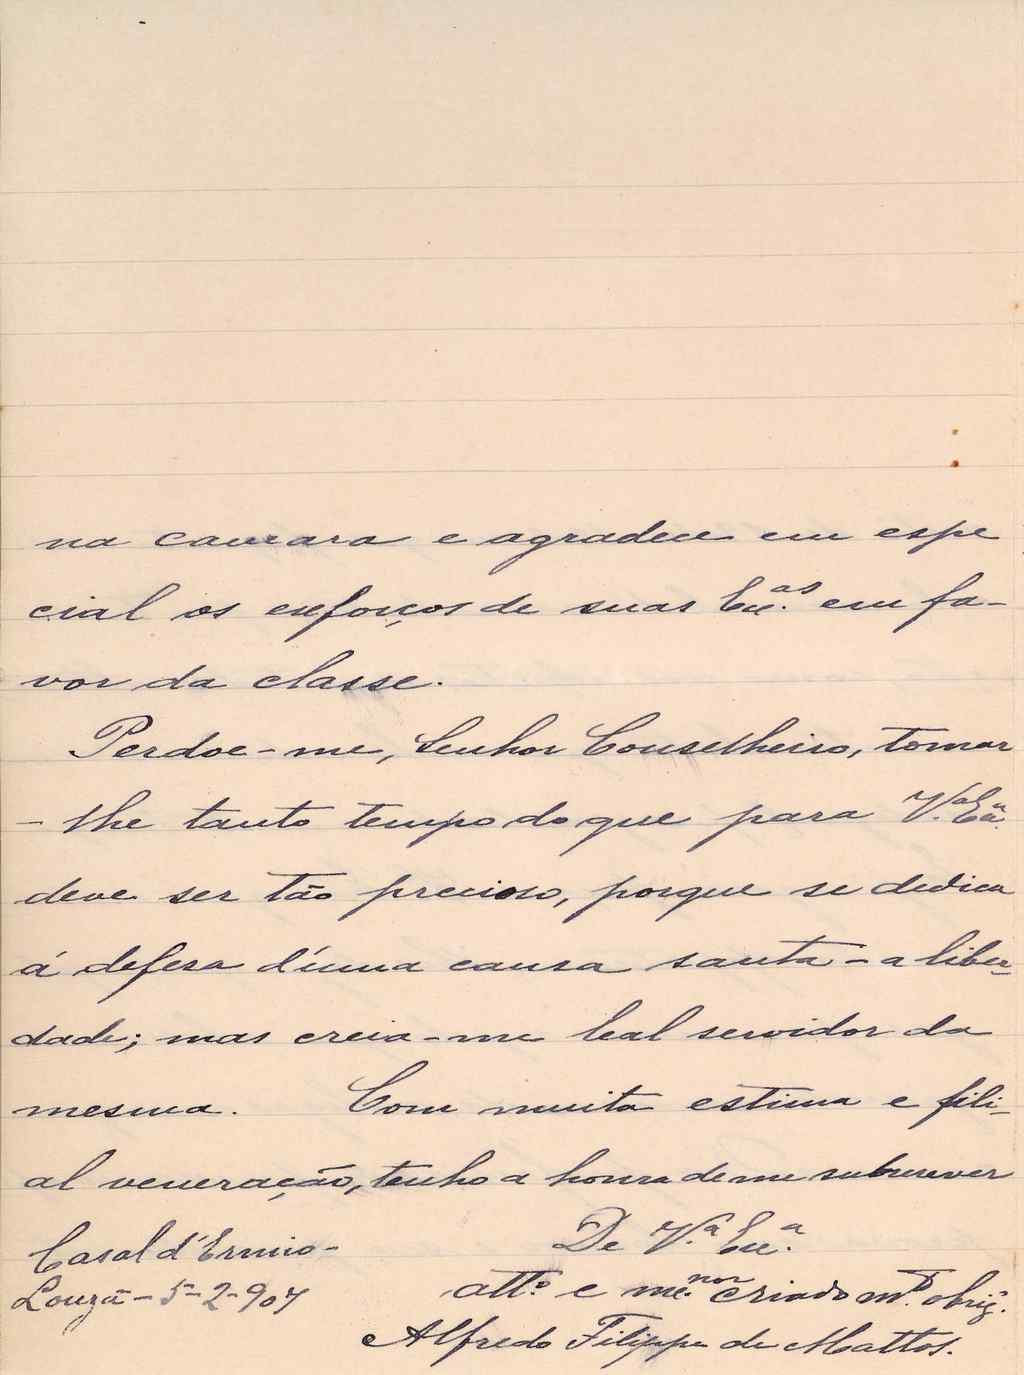 na camara e agradece em espe
cial os exforços de suas Ex.as em fa-
vor da classe.
Perdoe-me, Senhor Conselheiro, tomar
- lhe tanto tempo do que para V.a Ex.a
deve ser tão precioso, porque se dedica
á defesa d'uma causa santa - a liber-
dade; mas creia-me leal servidor da
mesma. Com muita estima e fili-
al veneração, tenho a honra de me subscrever
De V.a Ex.a
Casal d'Ermio-
Louzã - 5-2-907
att.o e me.nor criado m.to obrig.
Alfredo Filippe de Mattos.